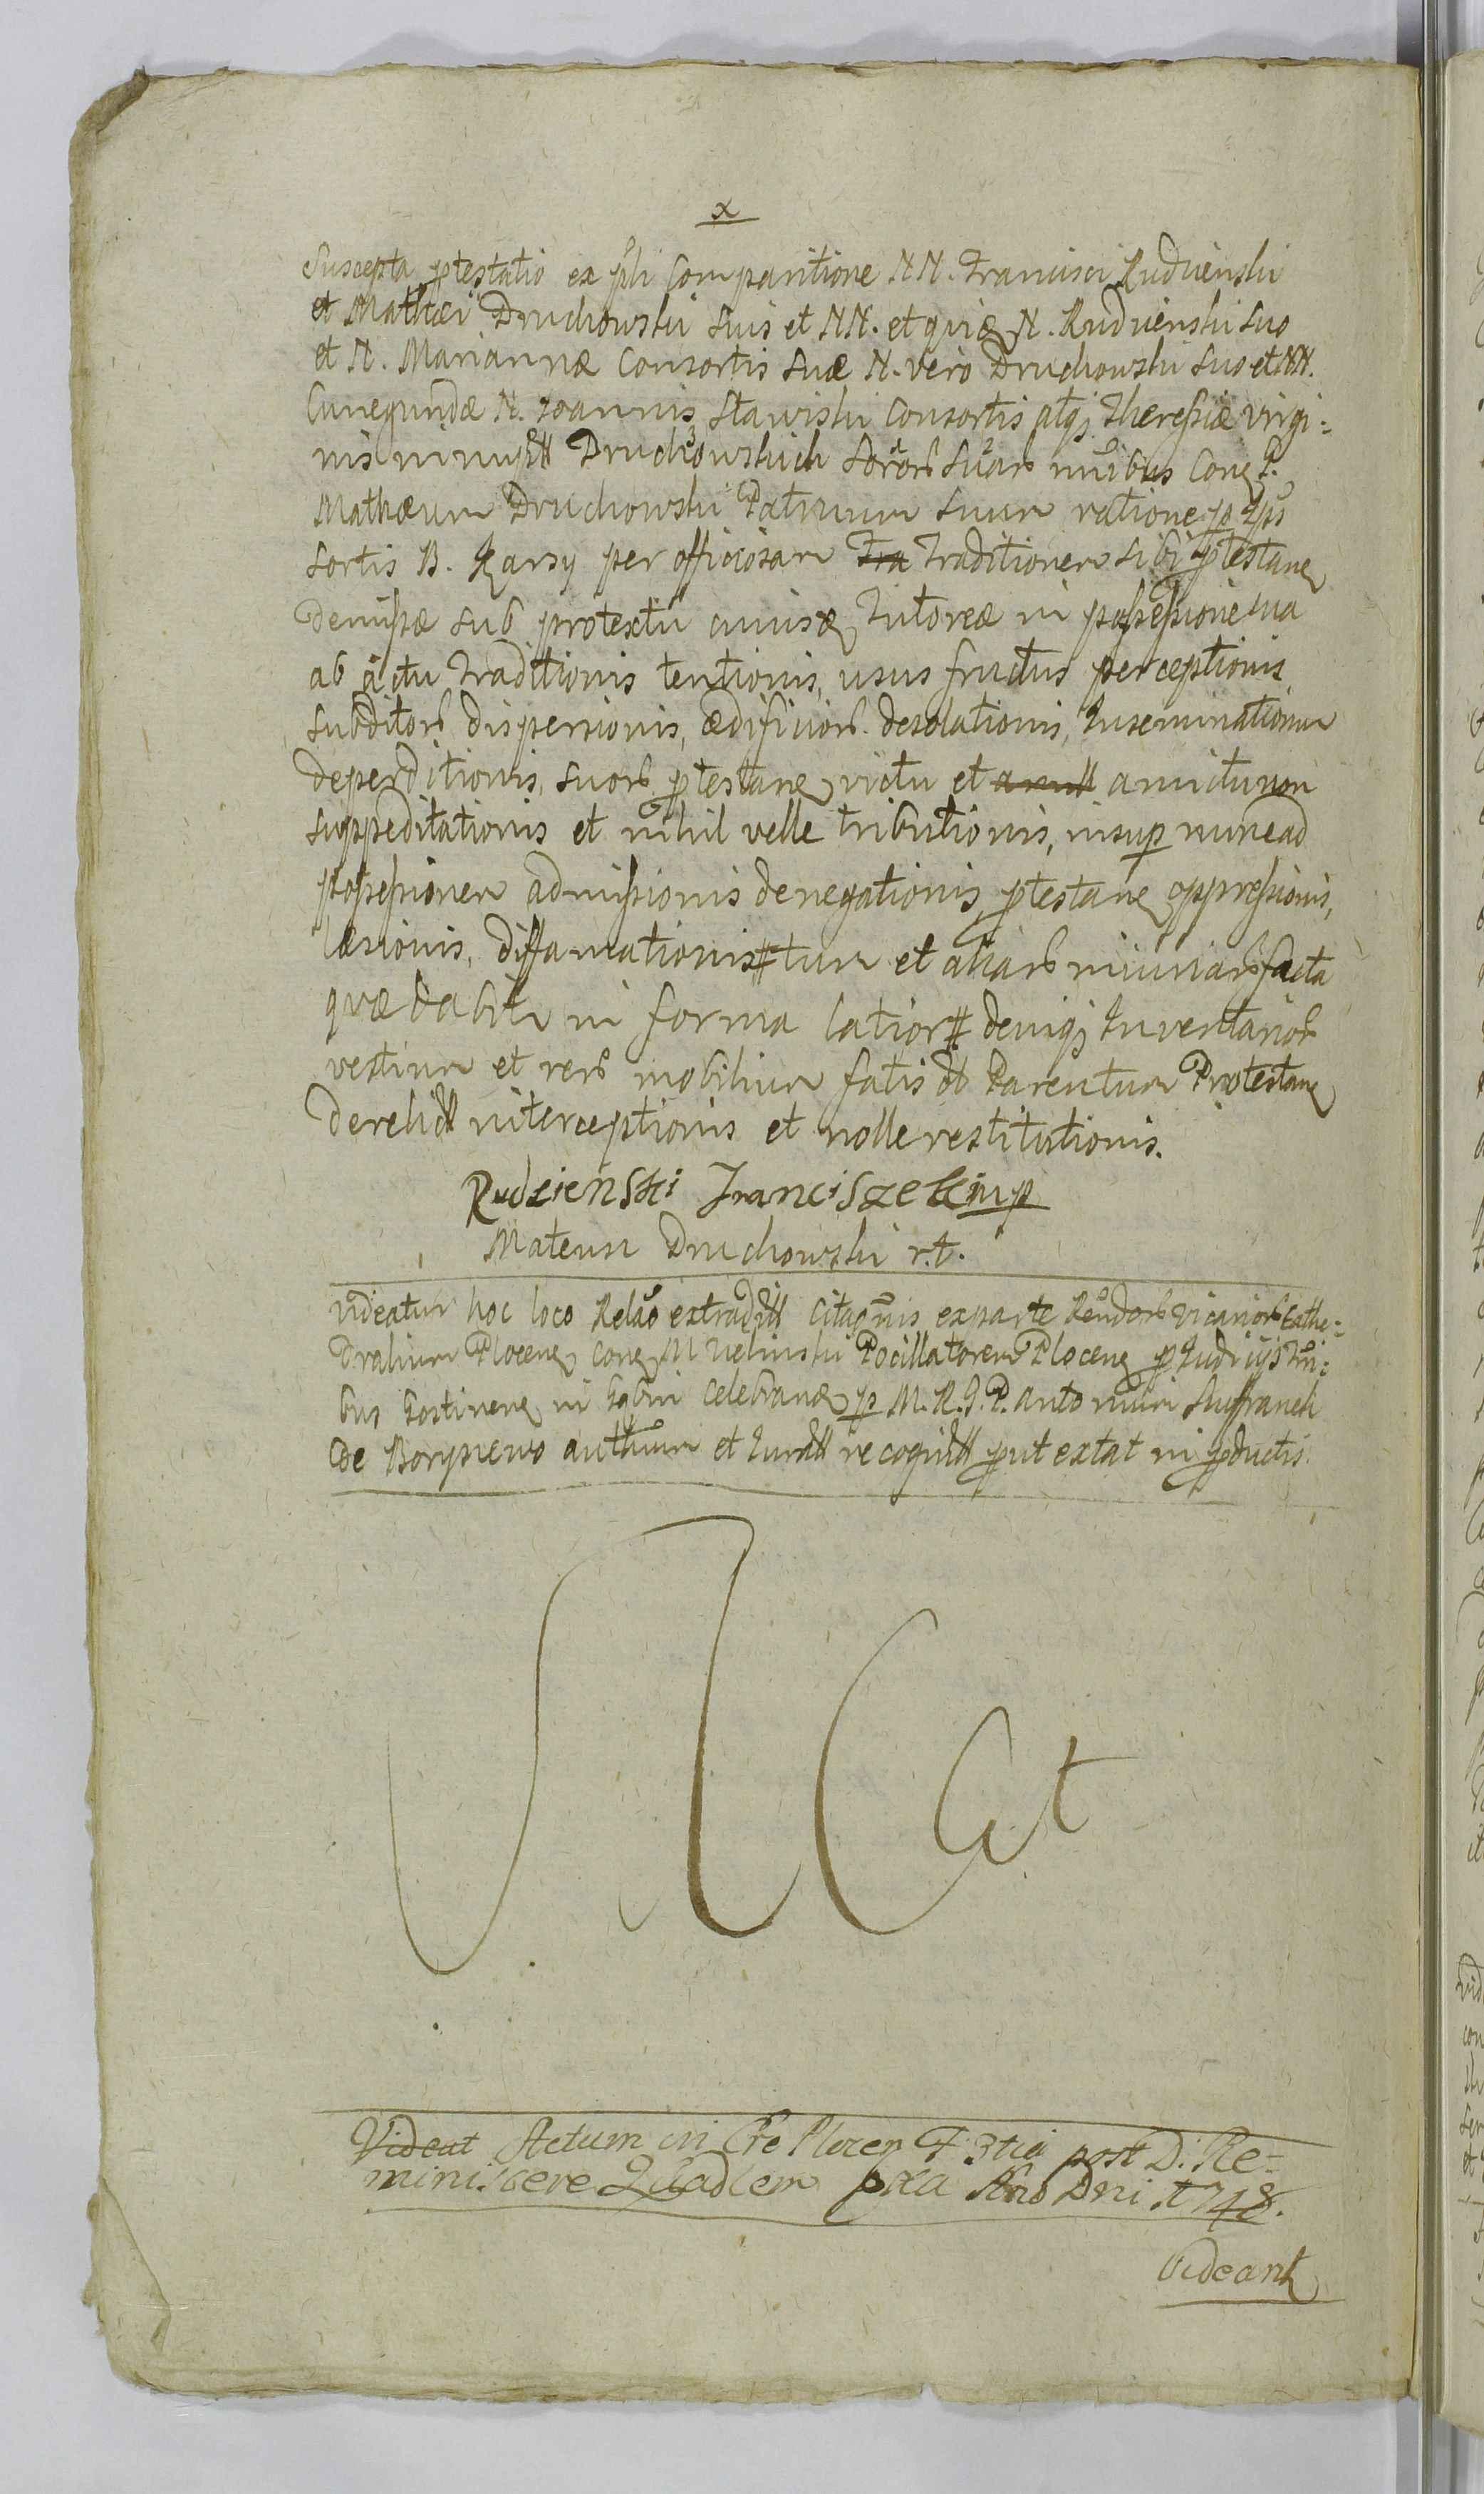 x
Suscepta ptestatio ex pſli Comparitione NN. Francisci Rudzienski
et Mathæi Druchowski suis et NN. et quidē N. Rudzienski suo
et N. Mariannæ Consortis suæ N. vero Druchowski suo et NN.
Cunegundæ N. Joannis Stawiski Consortis atq; Theresiæ virgi=
nis Druchowskich soror suar nõibus Con G.
Mathæum Druchowski Patruum suum ratione p
sortis B. Karsy per officiosam Tra Traditionem sibi ptestan
demissæ sub protextu Tutoreæ in possessione sua
ab actu Traditionis tentionis, usus fructus perceptionis
subditor dispersionis, ædificior desolationis, Inseminationum
deperditionis, suor ptestan victu et amictu non
suppeditationis et nihil velle tributionis, insup nunc ad
possessionem admissionis denegationis, ptestan oppressionis,
læsionis, diffamationis tum et aliar iniuriar facta
quæ dabitr in forma latiori deniq; Inventarior
vestium et rer mobilium fatis Parentum Protestan
derelict interceptionis et nolle restitutionis.
Rudzienski Franciszek mp
Mateusz Druchowski r.t.
Videatur hoc loco Relão extradit Citaõnis ex parte Rendor Vicarior Cathe=
dralium Plocen con M Zielinski Pocillatorem Plocen p Judicijs Tri=
bus Gostinen in Gbin celebran p M. R. G. P. Antonium
de Borysewo authum et Jurat recognit put extat in pductis.
Vacat
Videat Actum in Cre Plocen F. 3tia post D. Re=
miniscere Quadlem pxa Ano Dni 1748.
Videant